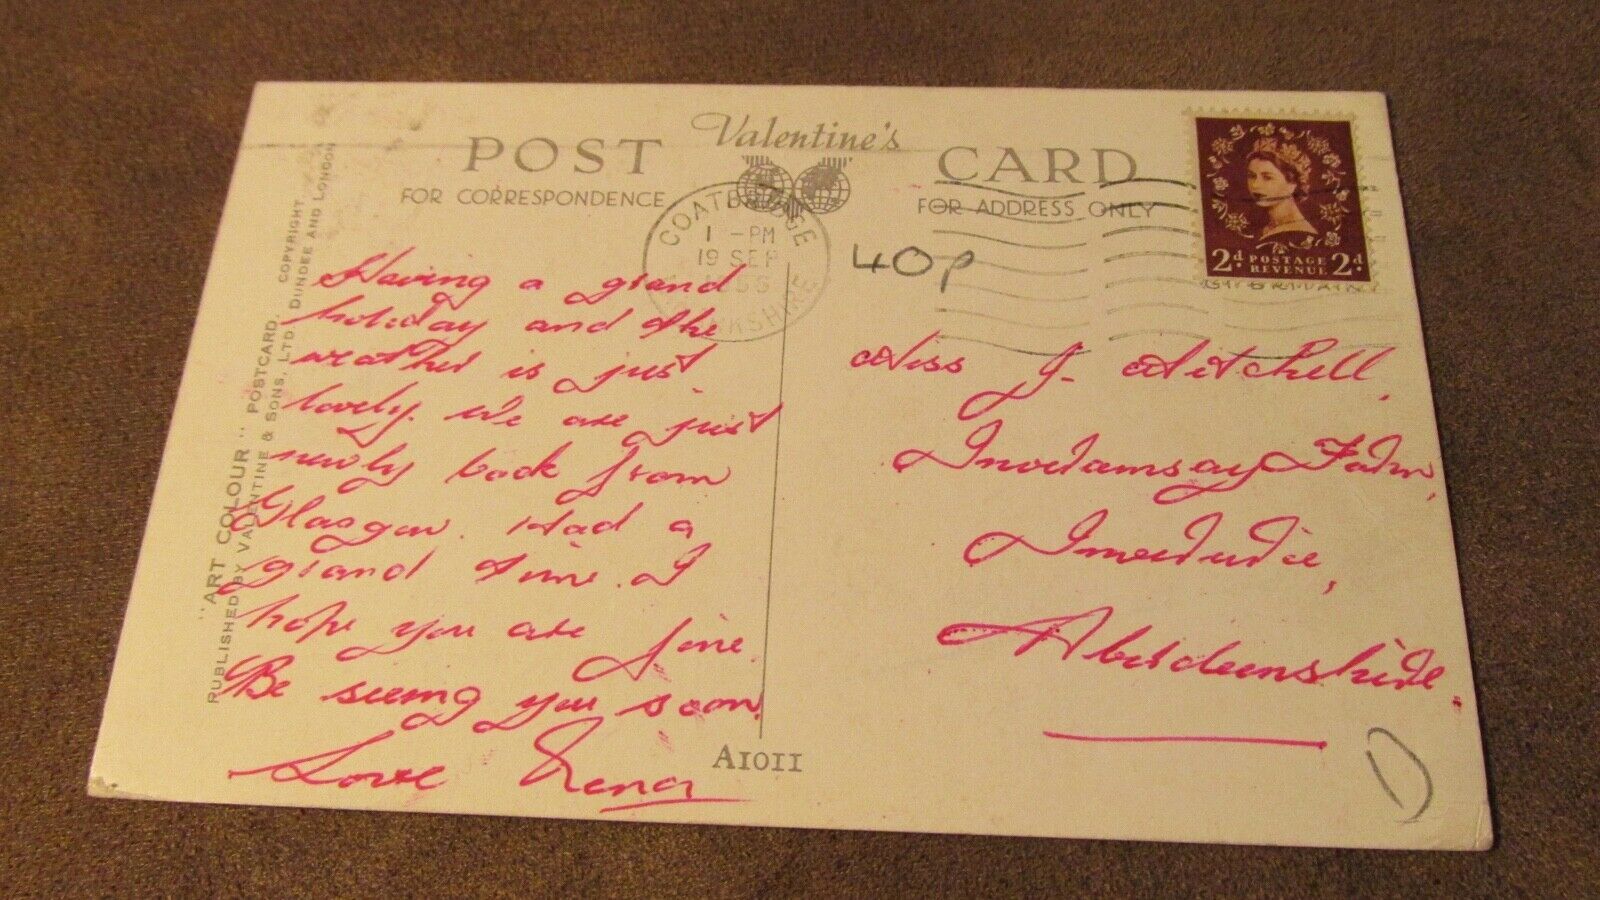 Valentine's
POST CARD
FOR CORRESPONDENCE
FOR ADDRESS ONLY
COATBRIDGE
1 - PM
19 SEP
LANARKSHIRE
2d POSTAGE REVENUE 2d
40p
Having a grand
holiday and the
weather is just
lovely. We are just
newly back from
Glasgow. Had a
grand time. I
hope you are fine.
Be seeing you soon.
Love
Miss J. Mitchell,
Farm,
Inverurie,
Aberdeenshire.
A1011
D
"ART COLOUR" POSTCARD. COPYRIGHT
PUBLISHED BY VALENTINE & SONS, LTD., DUNDEE AND LONDON